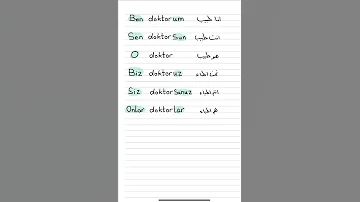 Ben doktorum انا طبيب
Sen doktorSun انت طبيب
O doktor هو طبيب
Biz doktoruz نحن اطباء
Siz doktorsunuz انتم اطباء
Onlar doktorlar هم اطباء